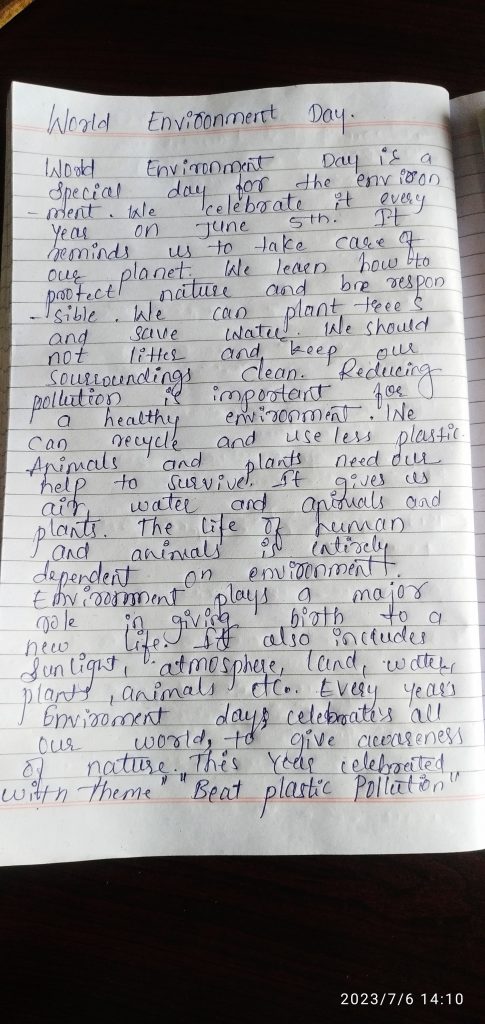 World Environment Day.
World Environment Day is a
special day for the environ
-ment. We celebrate it every
year on June 5th. It
reminds us to take care of
our planet. We learn how to
protect nature and bre respon
-sible. We can plant trees
and save water. We should
not litter and keep our
sourroundings clean. Reducing
pollution is important for
a healthy environment. We
can recycle and use less plastic.
Animals and plants need our
help to survive. It gives us
air, water and animals and
plants. The life of human
and animals is entirely
dependent on environment.
Environment plays a major
role in giving birth to a
new life. It also includes
Sunlight, atmosphere, land, water,
plants, animals etc. Every year's
Enviroment days celebrates all
our world, to give awareness
of nature. This year celebrated
with theme" "Beat plastic Pollution"
2023/7/6 14:10